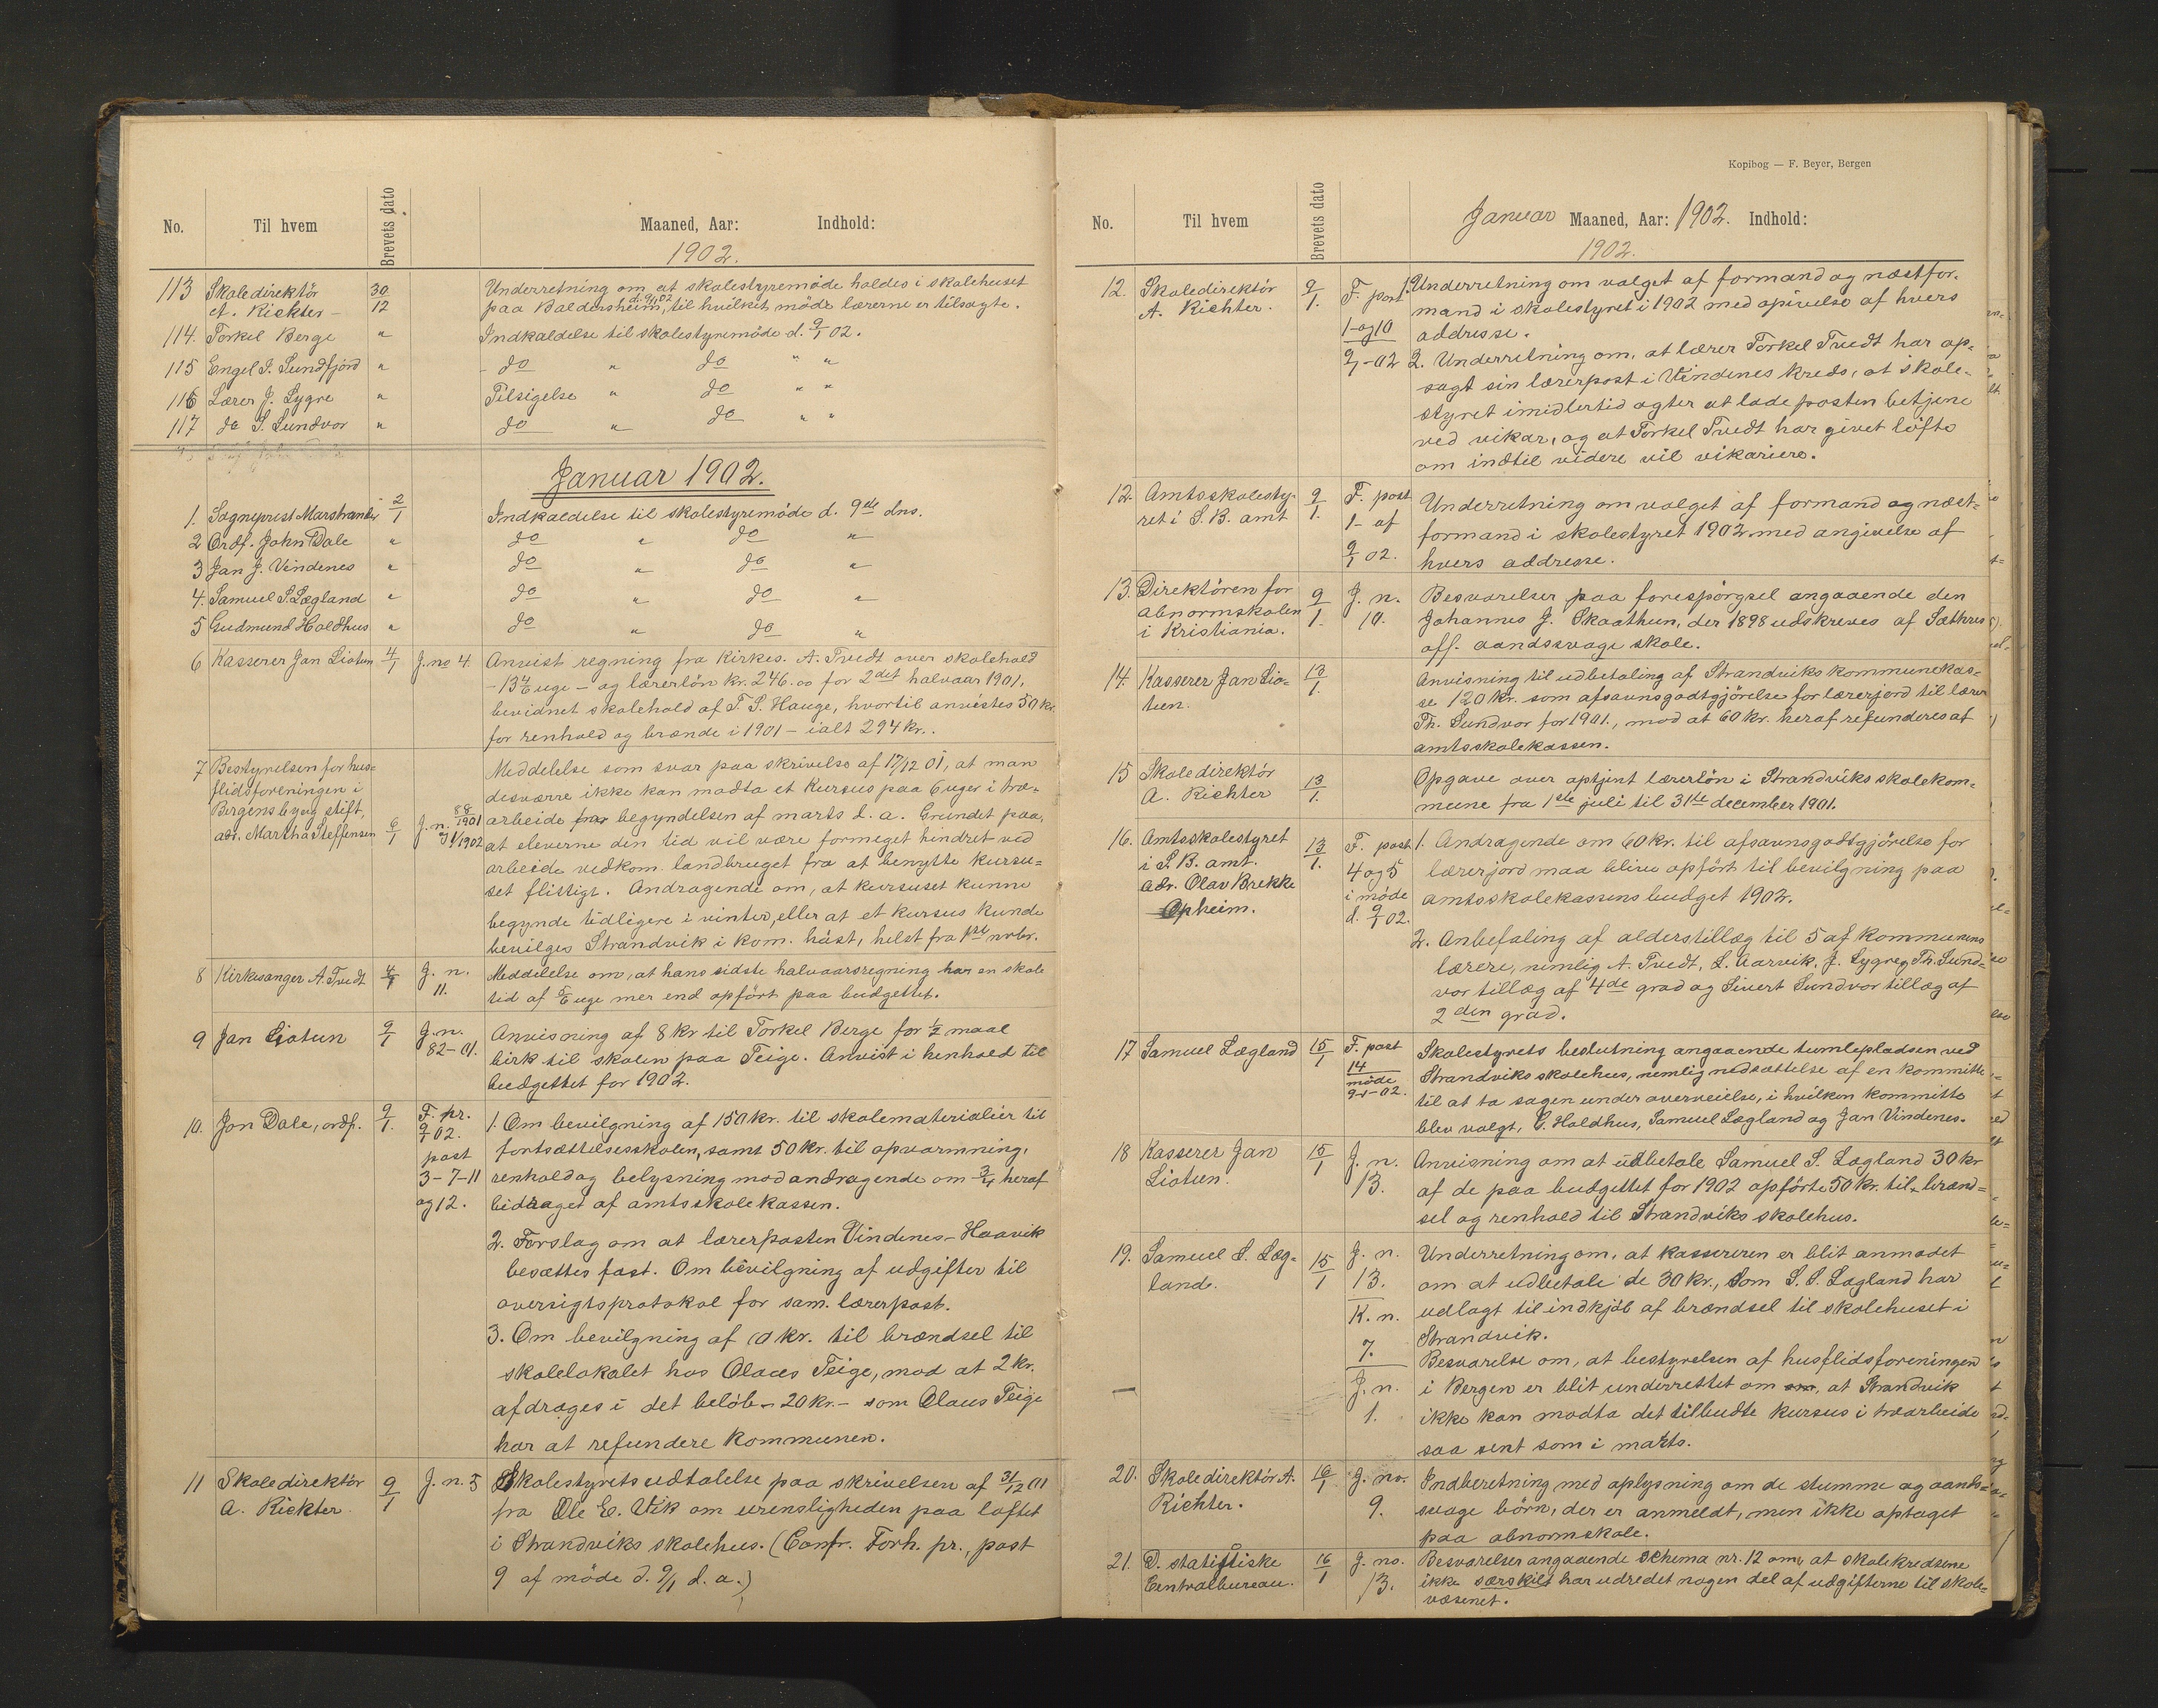 No. Til hvem Brevets dato Maaned, Aar: Indhold:
1902.
113 Skoledirektör 30/12 Underretning om at skolestyremöde holdes i skolehuset
A. Richter – paa Baldersheim d. 9/1 02, til hvilket möde lærerne er tilsagte.
114. Torkel Berge " Indkaldelse til skolestyremöde d. 9/1 02.
115 Engel S. Sundfjord " do " do " "
116 Lærer J. Lygre " Tilsigelse " do " "
117 do S. Sundvor " do " do " "
Januar 1902.
1. Sogneprest Marstrander 2/1 Indkaldelse til skolestyremöde d. 9de dns.
2 Ordf. John Dale " do " do "
3 Jan J. Vindenes " do " do "
4. Samuel S. Lægland " do " do "
5 Gudmund Holdhus " do " do "
6 Kasserer Jan Liotun 4/1 J. no 4. Anvist regning fra Kirkes. A. Tvedt over skolehold
– 13 4/6 uge – og lærerlön kr. 246.00 for 2det halvaar 1901,
bevidnet skolehold af T. S. Hauge, hvortil anvistes 50 kr.
for renhold og brænde i 1901 – ialt 294 kr..
7 Bestyrelsen for hus= Meddelelse som svar paa skrivelse af 17/12 01, at man
flidsforeningen i desværre ikke kan modta et kursus paa 6 uger i træ-
Bergens by og stift, 6/1 J. n. 88/1901 arbeide fra begyndelsen af marts d. a. Grundet paa,
adr. Martha Steffensen og 1/1902 at eleverne den tid vil være formeget hindret ved
arbeide vedkom. landbruget fra at benytte kursu=
set flittigt. Andragende om, at kursuset kunne
begynde tidligere i vinter, eller at et kursus kunde
bevilges Strandvik i kom. höst, helst fra 1ste nvbr.
8 Kirkesanger A. Tvedt 4/1 J. n. Meddelelse om, at hans sidste halvaarsregning har en skole
11. tid af 5/6 uge mer end opfört paa budgettet.
9 Jan Liotun 9/1 J. n. Anvisning af 8 kr til Torkel Berge for 1/2 maal
82-01. birk til skolen paa Teige. Anvist i henhold til
budgettet for 1902.
10. Jon Dale, ordf. 9/1. F. pr. 1. Om bevilgning af 150 kr. til skolematerialier til
9/1 02. fortsættelsesskolen, samt 50 kr. til opvarmning,
post
3-7-11 renhold og belysning mod andragende om 3/4 heraf
og 12. bidraget af amtsskolekassen.
2. Forslag om at lærerposten Vindenes-Haavik
besættes fast. Om bevilgning af udgifter til
oversigtsprotokol for sam. lærerpost.
3. Om bevilgning af 10 kr. til brændsel til
skolelokalet hos Olaus Teige, mod at 2 kr.
afdrages i det belöb – 20 kr. – som Olaus Teige
har at refundere kommunen.
11 Skoledirektör 9/1 J. n. 5 Skolestyrets udtalelse paa skrivelsen af 31/12 01
A. Richter. fra Ole E. Vik om urensligheden paa loftet
i Strandviks skolehus. (Confr. Forh. pr., post
9 af möde d. 9/1 d. a.)
Kopibog — F. Beyer, Bergen
No. Til hvem Brevets dato Januar Maaned, Aar: 1902. Indhold:
1902.
12. Skoledirektör 9/1. F. post 1. Underretning om valget af formand og næstfor-
A. Richter. 1- og 10 mand i skolestyret i 1902 med opivelse af hvers
addresse.
9/1-02 2. Underretning om, at lærer Torkel Tvedt har op-
sagt sin lærerpost i Vindenes kreds, at skole-
styret imidlertid agter at lade posten betjene
ved vikar, og at Torkel Tvedt har givet löfte
om indtil videre vil vikariere.
12. Amtsskolesty- 9/1. F. post Underretning om valget af formand og næst-
ret i S. B. amt 1- af formand i skolestyret 1902 med angivelse af
9/1 02. hvers addresse.
13. Direktören for 9/1. J. n. Besvarelser paa forespörgsel angaaende den
abnormskolen 10. Johannes J. Skaathun, der 1898 udskreves af Sæthres
i Kristiania. off. aandssvage skole.
14. Kasserer Jan Lio- 13/1. Anvisning til udbetaling af Strandviks kommunekas-
tun. se 120 kr. som afsavnsgodtgjörelse for lærerjord til lærer
Th. Sundvor for 1901., mod at 60 kr. heraf refunderes af
amtsskolekassen.
15 Skoledirektör 13/1. Opgave over optjent lærerlön i Strandviks skolekom-
A. Richter mune fra 1ste juli til 31te december 1901.
16. Amtsskolestyret 13/1. F. post 1. Andragende om 60 kr. til afsavnsgodtgjörelse for
i S. B. amt. 4 og 5 lærerjord maa blive opfört til bevilgning paa
adr. Olav Brekke i möde amtsskolekassens budget 1902.
Opheim. d. 9/1 02.
2. Anbefaling af alderstillæg til 5 af kommunens
lærere, nemlig A. Tvedt, L. Aarvik, J. Lygre, Th. Sund-
vor tillæg af 4de grad og Sivert Sundvor tillæg af
2den grad.
17 Samuel Lægland 15/1 F. post Skolestyrets beslutning angaaende tumlepladsen ved
14 Strandviks skolehus, nemlig nedsættelse af en kommitte
möde
9-1-02. til at ta sagen under overveielse, i hvilken kommitte
blev valgt, G. Holdhus, Samuel Lægland og Jan Vindenes.
18 Kasserer Jan 15/1 J. n. Anvisning om at udbetale Samuel S. Lægland 30 kr
Liotun. 13. af de paa budgettet for 1902 opförte 50 kr. til brænd-
sel og renhold til Strandviks skolehus.
19. Samuel S. Læg- 15/1 J. n. Underretning om, at kassereren er blit anmodet
land. 13. om at udbetale de 30 kr., som S. S. Lægland har
K. n. udlagt til indkjöb af brændsel til skolehuset i
7. Strandvik.
Besvarelse om, at bestyrelsen af husflidsforeningen
— J. n. i Bergen er blit underrettet om om, at Strandvik
1. ikke kan modta det tilbudte kursus i træarbeide
saa sent som i marts.
20. Skoledirektör A. 16/1 J. no. Indberetning med oplysning om de stumme og aands-
Richter. 9. svage börn, der er anmeldt, men ikke optaget
paa abnormskole.
21. D. statistiske 16/1 J. no. Besvarelser angaaende Schema nr. 12 om, at skolekredsene
Centralbureau. 13. ikke særskilt har udredet nogen del af udgifterne til skole-
væsenet.